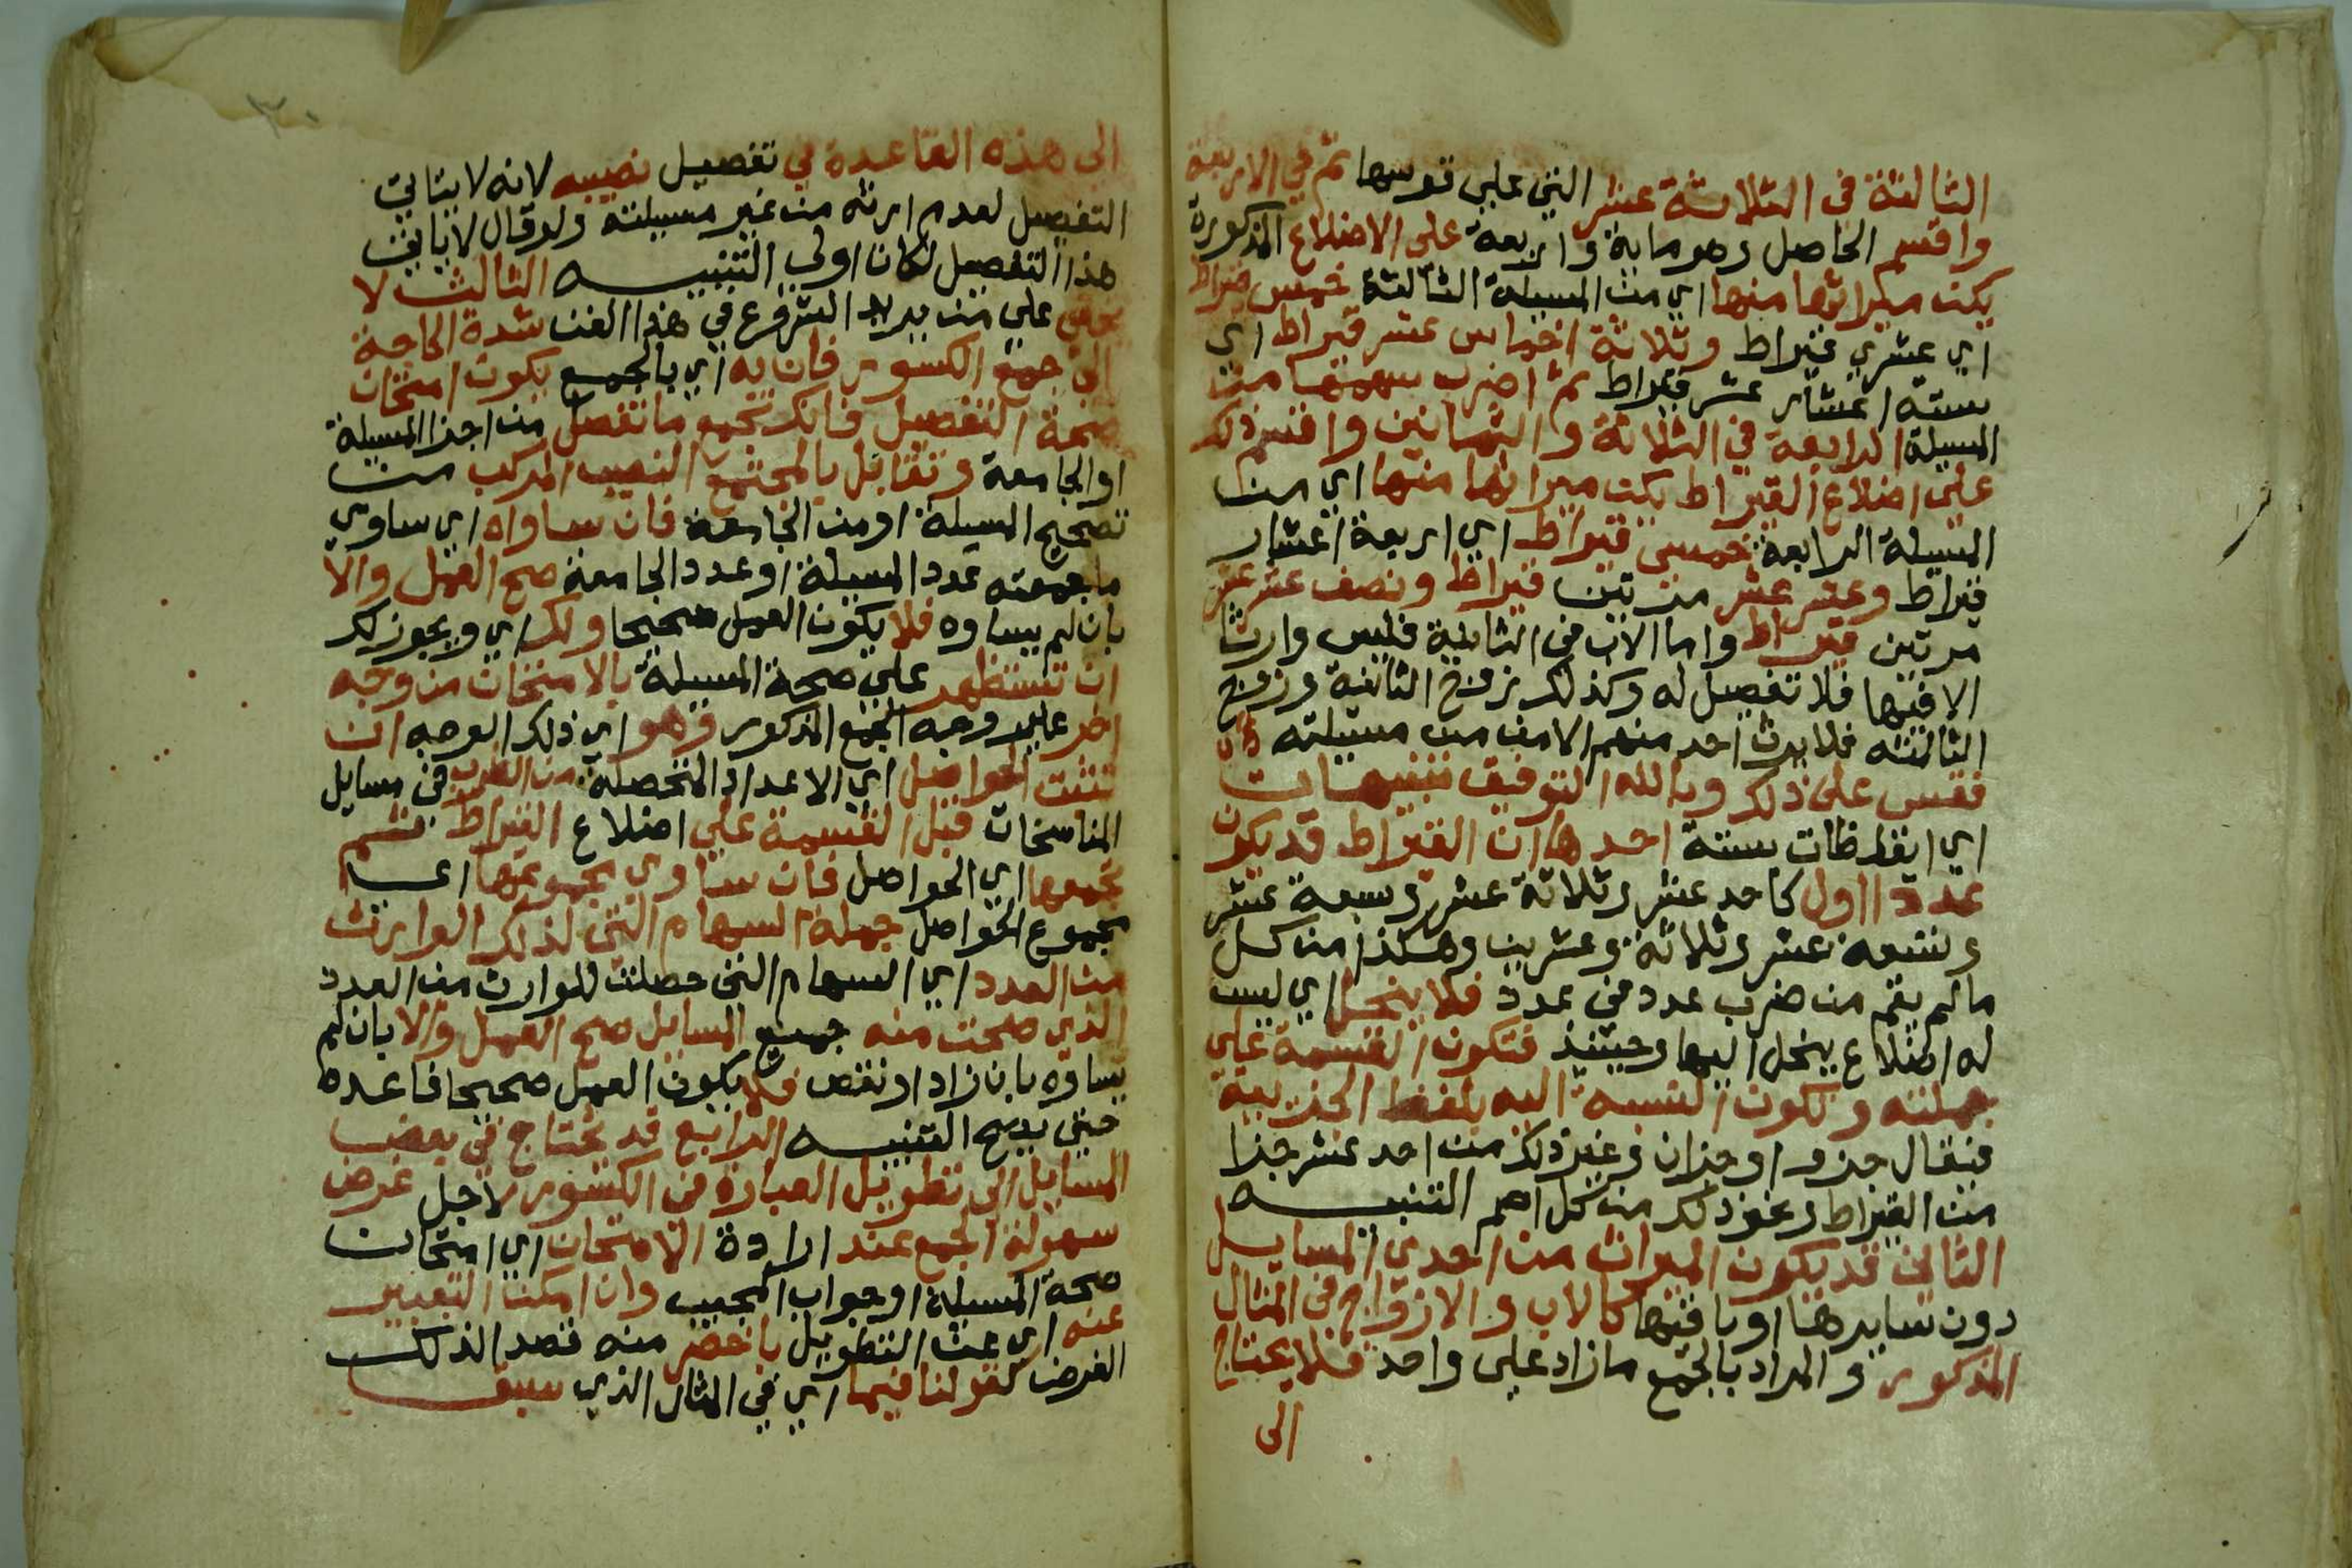 الثالثة في الثلاثة عشر التي على قوسها ثم في الاربعة
واقسم الحاصل وهو ماية واربعة على الاضلاع المذكورة
يكن ميراثها منها اي من المسيلة الثالثة خمس قيراط
اي عشري قيراط وثلاثة اخماس عشر قيراط اي
ستة اعشار عشر قيراط ثم اضرب سهمها من
المسيلة الرابعة في الثلاثة والثمانين واقسم ذلك
على اضلاع القيراط يكن ميراثها منها اي من
المسيلة الرابعة خمسي قيراط اي اربعة اعشار
قيراط وعشر عشر مرتين قيراط ونصف عشر عشر
مرتين قيراط واما الاب في الثانية فليس وارثا
الا فيها فلا تفصيل له وكذلك زوج الثانية وزوج
الثالثة فلا يرث احد منهم الا من مسيلته
فقس على ذلك وبالله التوفيق تنبيهات
اي ايقاظات ستة احدها ان القيراط قد يكون
عددا اول كاحد عشر وثلاثة عشر وسبعة عشر
وتسعة عشر وثلاثة وعشرين وهكذا من كل
ما لم يقم من ضرب عدد في عدد فلا ينحل اي ليس
له اضلاع ينحل اليها وحينيذ فتكون القسمة على
جملته وتكون النسبة اليه بلفظ الجزيية
فيقال جزو او جزان وغير ذلك من احد عشر جزا
من القيراط ونحو ذلك من كل اصم التنبيه
الثاني قد يكون الميراث من احدي المسايل
دون سايرها او باقيها كالاب والازواج في المثال
المذكور والمراد بالجمع ما زاد على واحد فلا يحتاج
الى
الى هذه القاعدة في تفصيل نصيبه لانه لا يتاتى
التفصيل لعدم ارثه من غير مسيلته ولو قال لا ياتي
هذا التفصيل لكان اولى التنبيه الثالث لا
يخفى على من يريد الشروع في هذا الفن شدة الحاجة
الى جمع الكسور فان به اي بالجمع يكون امتحان
صحة التفصيل فانك تجمع ما تفصل من اجزا المسيلة
او الجامعة وتقابل بالمجتمع النصيب المركب من
تصحيح المسيلة او من الجامعة فان ساواه اي ساوي
ما جمعته عدد المسيلة او عدد الجامعة صح العمل والا
بان لم يساوه فلا يكون العمل صحيحا ولك اي ويجوز لك
ان تستظهر على صحة المسيلة بالامتحان من وجه
اخر غير وجه الجمع المذكور وهو اي ذلك الوجه ان
تثبت الحواصل اي الاعداد المتحصلة من الضرب في مسايل
المناسخات قبل القسمة على اضلاع القيراط ثم
تجمعها اي الحواصل فان ساوي مجموعها اي
مجموع الحواصل جملة السهام التي لذلك الوارث
من العدد اي السهام التي حصلت للوارث من العدد
الذي صحت منه جميع المسايل صح العمل والا بان لم
يساوه بان زاد او نقص فلا يكون العمل صحيحا فاعده
حتى يصح التنبيه الرابع قد يحتاج في بعض
المسايل الى تطويل العبارة في الكسور لاجل غرض
سهولة الجمع عند ارادة الامتحان اي امتحان
صحة المسيلة او جواب المجيب وان امكن التعبير
عنه اي عن التطويل باخصر منه قصد الذلك
الغرض كقولنا فيها اي في المثال الذي سبق